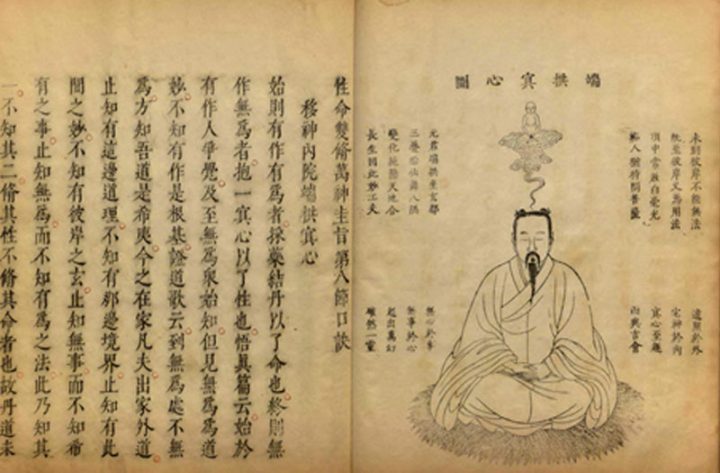 端拱冥心圖
未到彼岸不能無法
既至彼岸又焉用法
頂中常放白毫光
癡人猶待問菩薩
元君端拱坐玄都
三疊胎仙舞八隅
變化施爲天地合
長生因此妙工夫
遠照於外
宅神於內
冥心至趣
而與吉會
無心於事
無事於心
超出萬幻
確然一靈
性命雙脩萬神圭旨第八節口訣
移神內院端拱冥心
始則有作有爲者採藥結丹以了命也終則無
作無爲者抱一冥心以了性也悟眞篇云始於
有作人爭覺及至無爲衆始知但見無爲爲道
妙不知有作是根基證道歌云到無爲處不無
爲方知吾道是希夷今之在家凡夫出家外道
止知有這邊道理不知有那邊境界止知有此
間之妙不知有彼岸之玄止知無事而不知希
有之事止知無爲而不知有爲之法此乃知其
一不知其二脩其性不脩其命者也故丹道未